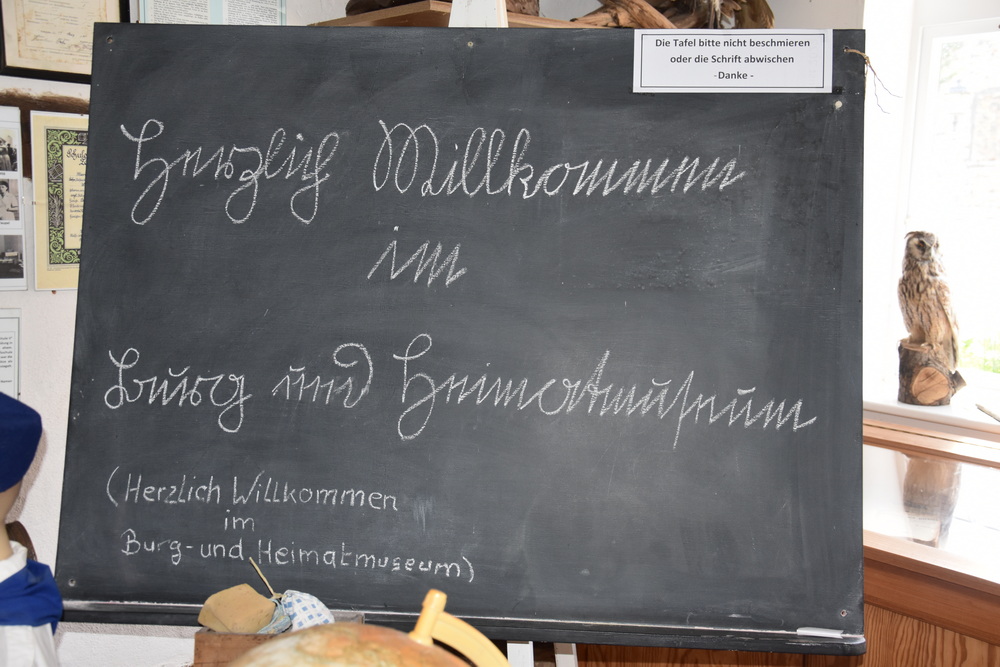 Die Tafel bitte nicht beschmieren
oder die Schrift abwischen
-Danke -
Herzlich Willkommen
im
Burg und Heimatmuseum
(Herzlich Willkommen
im
Burg-und Heimatmuseum)